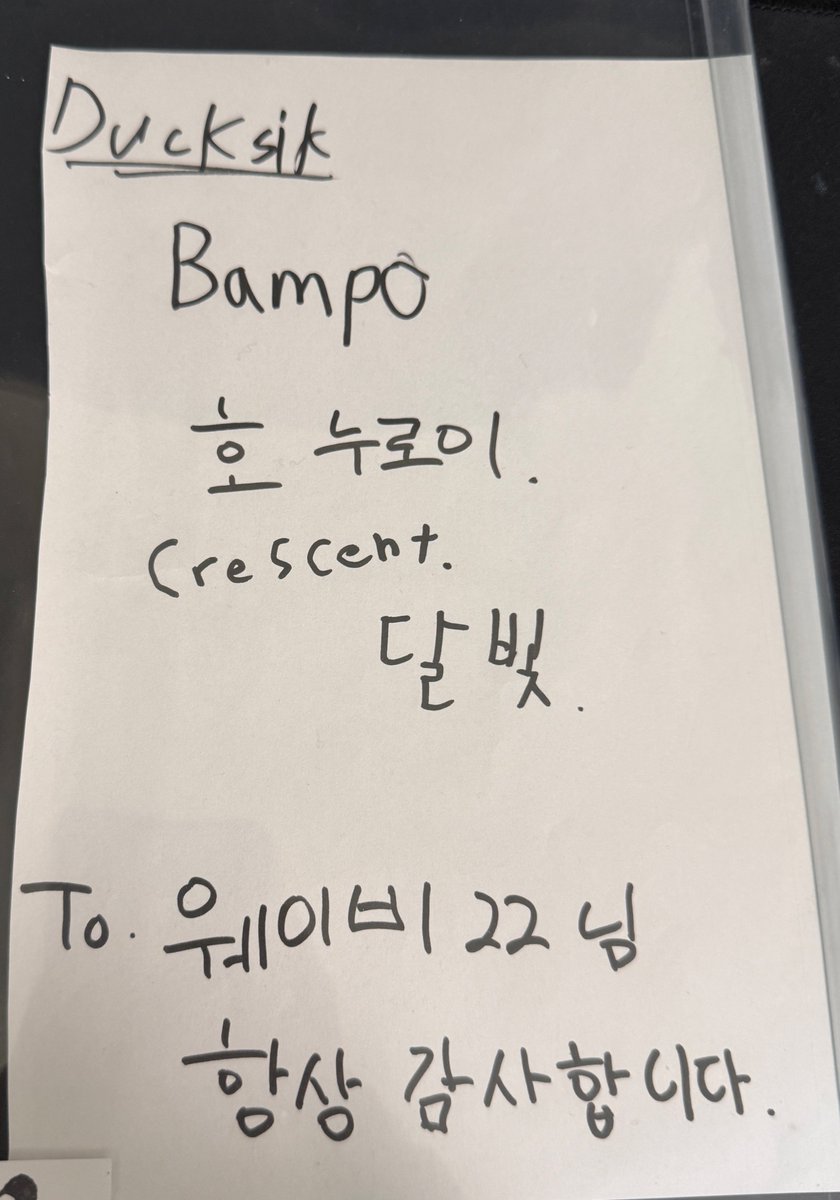 Ducksik
Bampô
호 누로이.
Crescent.
달빛.
To. 웨이비 22 님
항상 감사합니다.